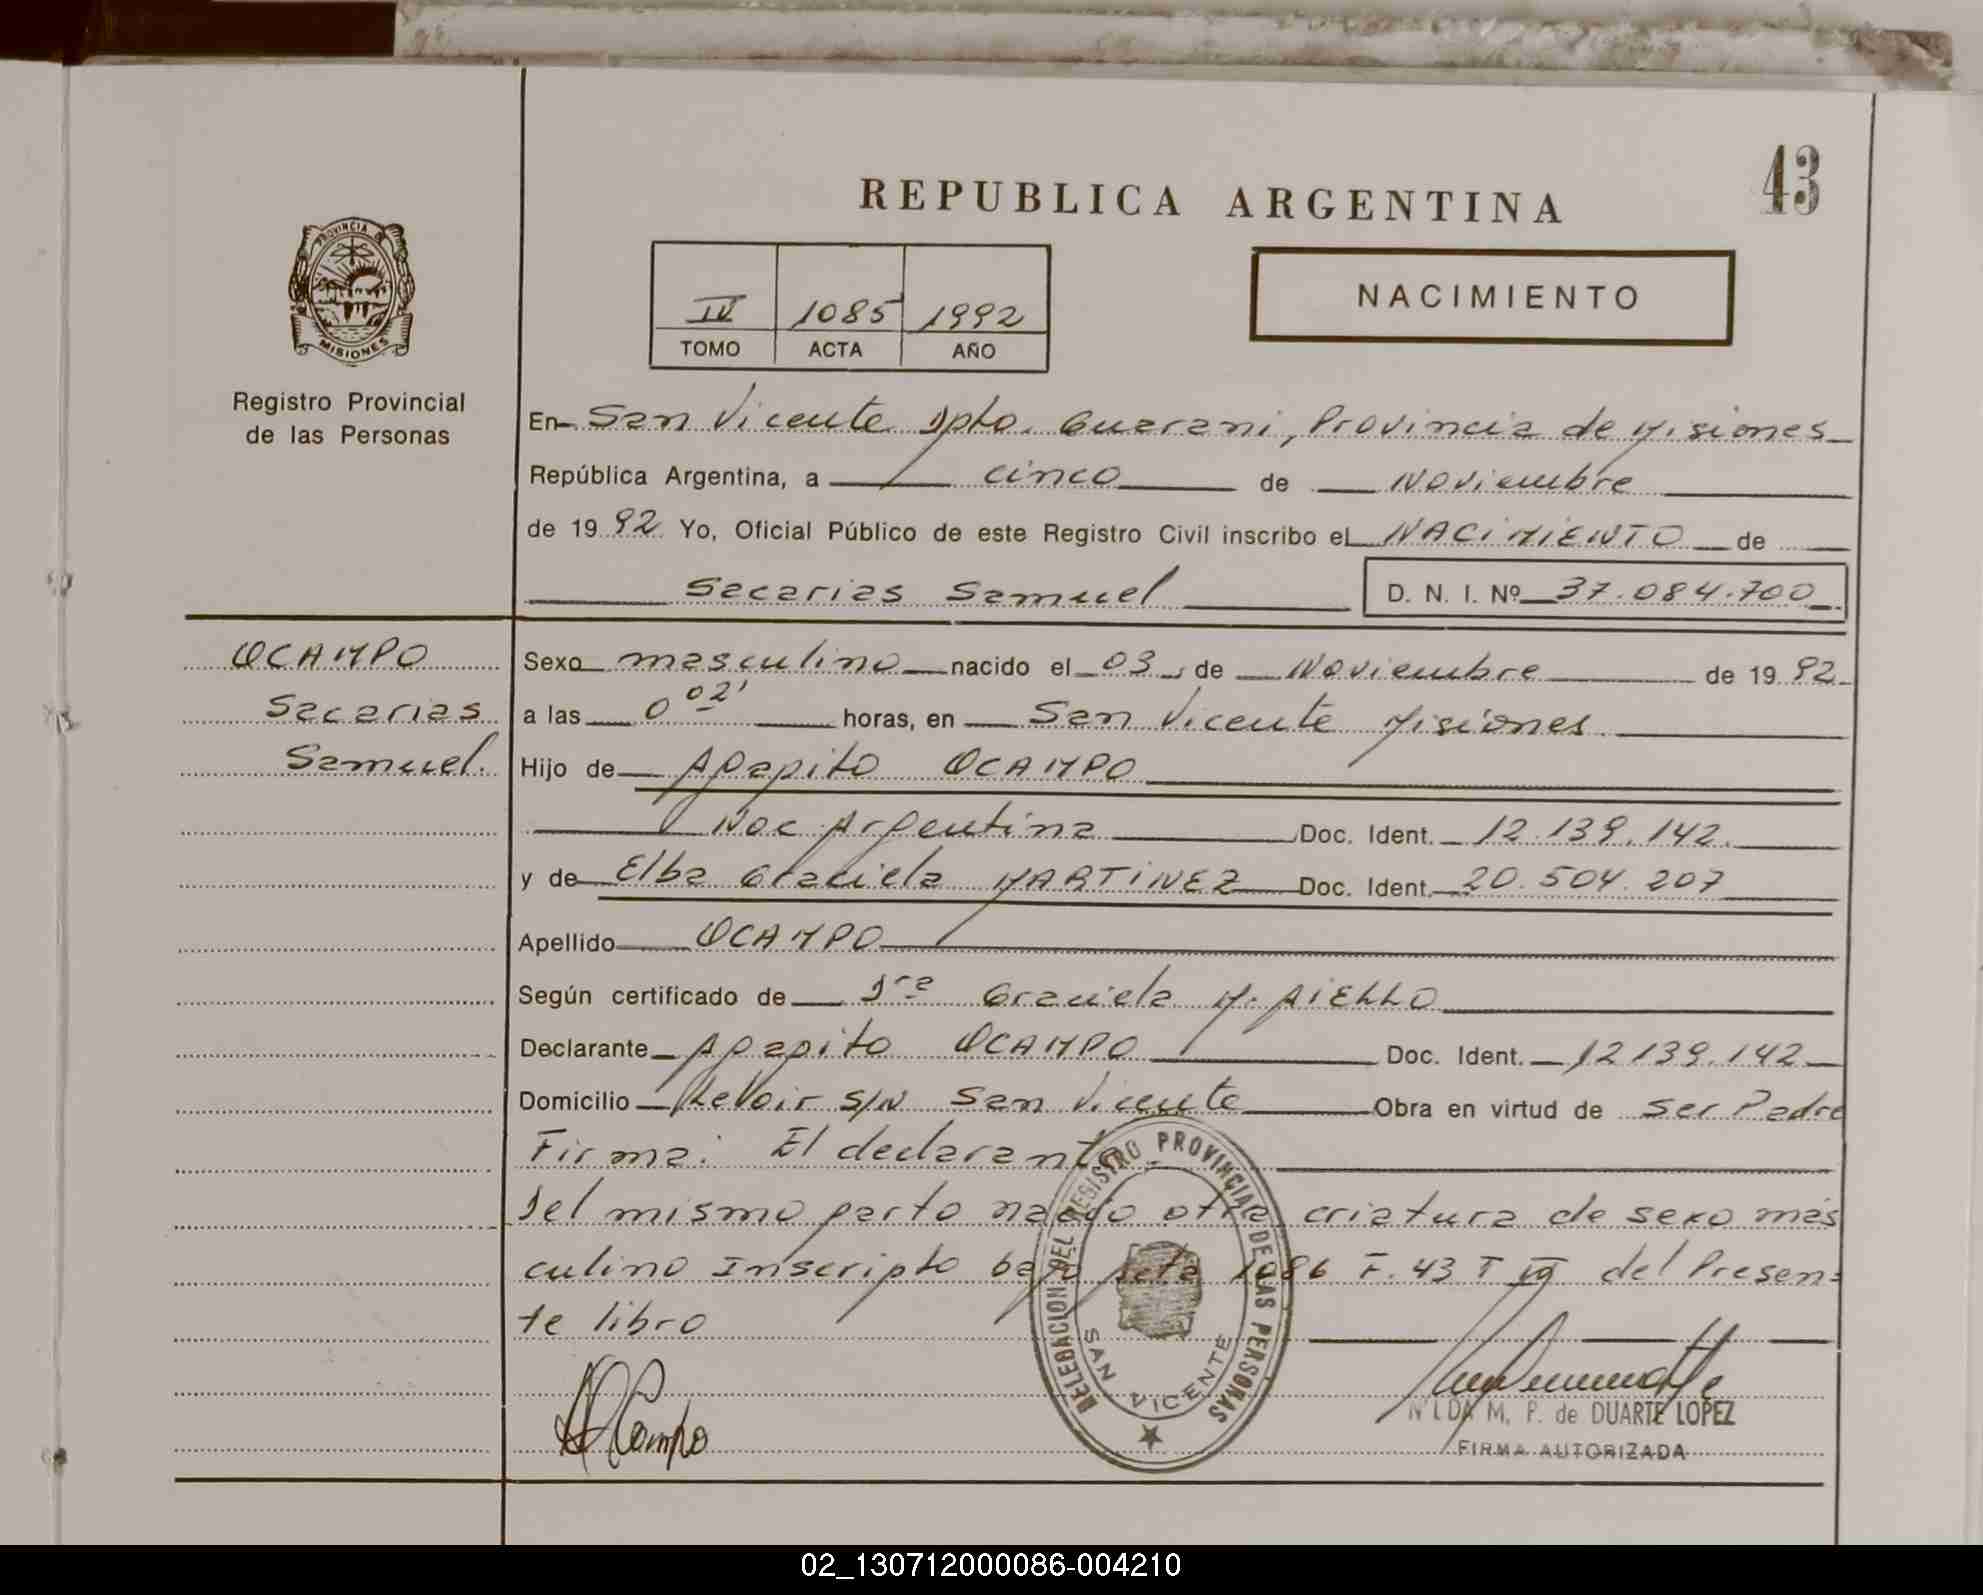 43
REPUBLICA ARGENTINA
PROVINCIA DE
MISIONES
Registro Provincial
de las Personas
IV 1085 1992
TOMO ACTA AÑO
NACIMIENTO
En San Vicente Dpto. Guarani, Provincia de Misiones
República Argentina, a cinco de Noviembre
de 1992 Yo, Oficial Público de este Registro Civil inscribo el NACIMIENTO de
Sacarias Samuel D. N. I. Nº 37.084.700
OCAMPO
Sacarias
Samuel.
Sexo masculino nacido el 03 de Noviembre de 1992
a las 0 02' horas, en San Vicente Misiones
Hijo de Agapito OCAMPO
Nac Argentina Doc. Ident. 12.139.142.
y de Elba Graciela MARTINEZ Doc. Ident. 20.504.207
Apellido OCAMPO
Según certificado de Dra Graciela M. AIELLO
Declarante Agapito OCAMPO Doc. Ident. 12139.142
Domicilio S/N San Vicente Obra en virtud de Ser Padre
Firma: El declarante
Del mismo parto nacio otra criatura de sexo mas
culino Inscripto bajo Acta 1086 F. 43 T IV del Presen-
te libro
DELEGACION DEL REGISTRO PROVINCIAL DE LAS PERSONAS
SAN VICENTE
NILDA M. P. de DUARTE LOPEZ
FIRMA AUTORIZADA
02_130712000086-004210